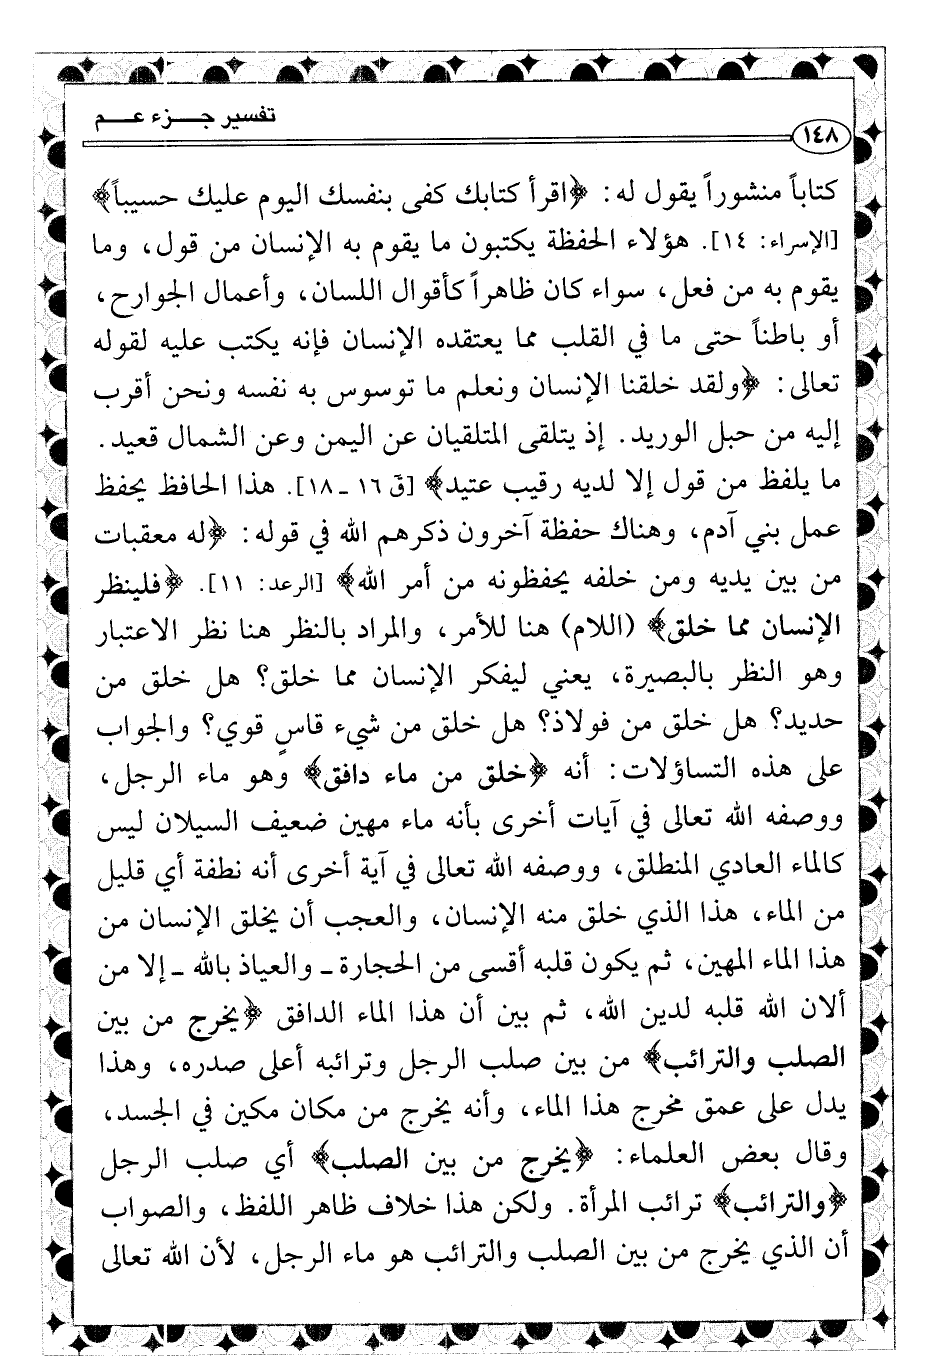 تفسير جزء عم
١٤٨
كتاباً منشوراً يقول له: ﴿اقرأ كتابك كفى بنفسك اليوم عليك حسيباً﴾
[الإسراء: ١٤]. هؤلاء الحفظة يكتبون ما يقوم به الإنسان من قول، وما
يقوم به من فعل، سواء كان ظاهراً كأقوال اللسان، وأعمال الجوارح،
أو باطناً حتى ما في القلب مما يعتقده الإنسان فإنه يكتب عليه لقوله
تعالى: ﴿ولقد خلقنا الإنسان ونعلم ما توسوس به نفسه ونحن أقرب
إليه من حبل الوريد. إذ يتلقى المتلقيان عن اليمن وعن الشمال قعيد.
ما يلفظ من قول إلا لديه رقيب عتيد﴾ [قۤ ١٦ ـ ١٨]. هذا الحافظ يحفظ
عمل بني آدم، وهناك حفظة آخرون ذكرهم الله في قوله: ﴿له معقبات
من بين يديه ومن خلفه يحفظونه من أمر الله﴾ [الرعد: ١١]. ﴿فلينظر
الإنسان مما خلق﴾ (اللام) هنا للأمر، والمراد بالنظر هنا نظر الاعتبار
وهو النظر بالبصيرة، يعني ليفكر الإنسان مما خلق؟ هل خلق من
حديد؟ هل خلق من فولاذ؟ هل خلق من شيء قاسٍ قوي؟ والجواب
على هذه التساؤلات: أنه ﴿خلق من ماء دافق﴾ وهو ماء الرجل،
ووصفه الله تعالى في آيات أخرى بأنه ماء مهين ضعيف السيلان ليس
كالماء العادي المنطلق، ووصفه الله تعالى في آية أخرى أنه نطفة أي قليل
من الماء، هذا الذي خلق منه الإنسان، والعجب أن يخلق الإنسان من
هذا الماء المهين، ثم يكون قلبه أقسى من الحجارة ـ والعياذ بالله ـ إلا من
ألان الله قلبه لدين الله، ثم بين أن هذا الماء الدافق ﴿يخرج من بين
الصلب والترائب﴾ من بين صلب الرجل وترائبه أعلى صدره، وهذا
يدل على عمق مخرج هذا الماء، وأنه يخرج من مكان مكين في الجسد،
وقال بعض العلماء: ﴿يخرج من بين الصلب﴾ أي صلب الرجل
﴿والترائب﴾ ترائب المرأة. ولكن هذا خلاف ظاهر اللفظ، والصواب
أن الذي يخرج من بين الصلب والترائب هو ماء الرجل، لأن الله تعالى